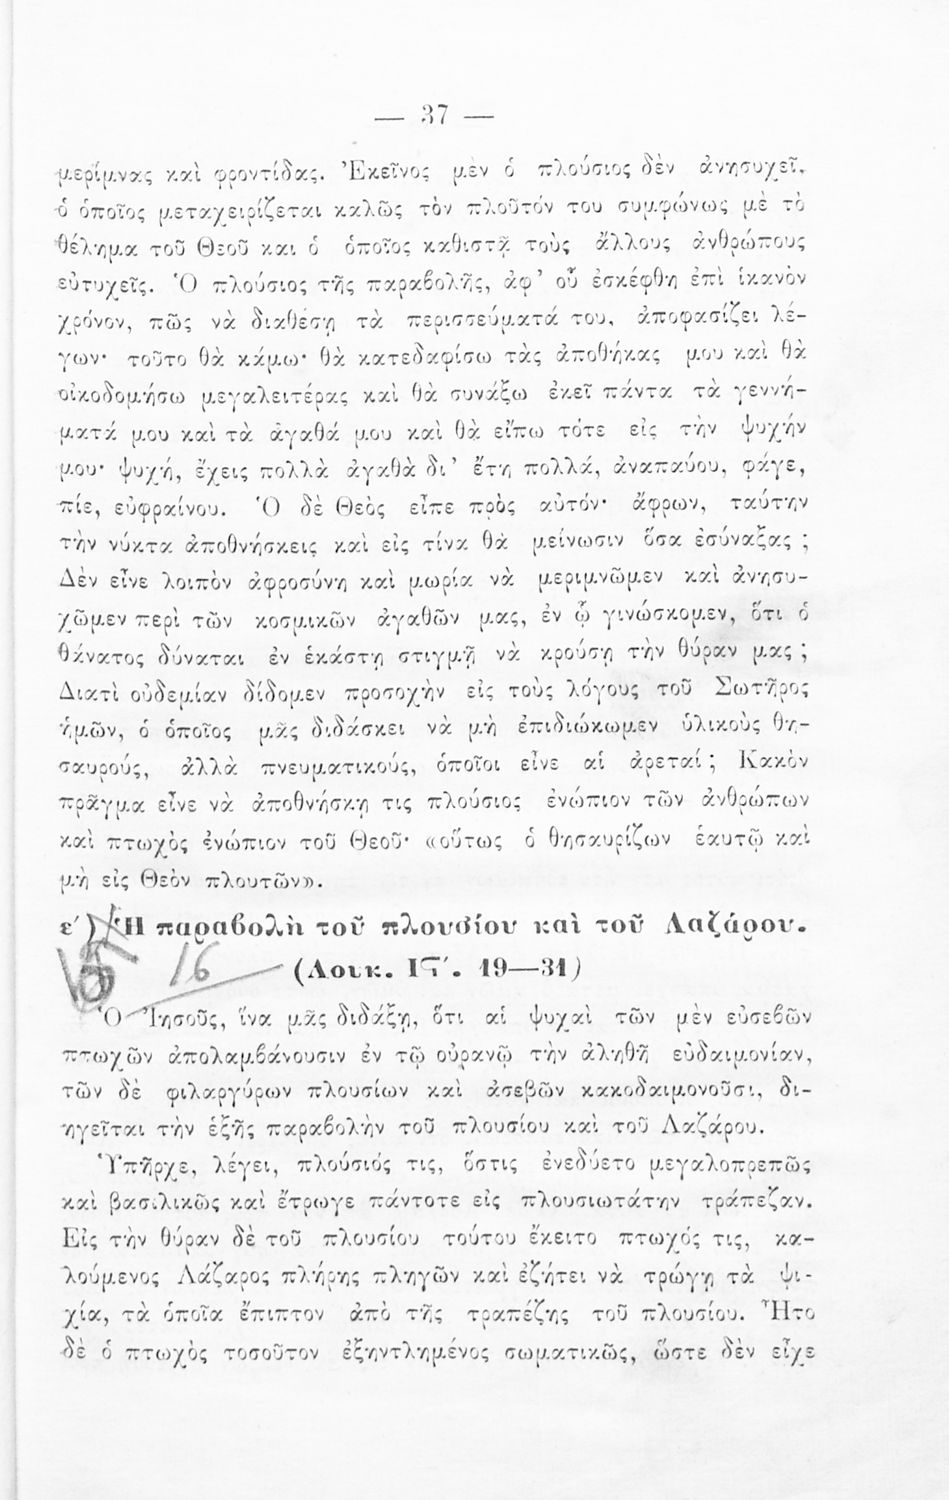 — 37 —
μερίμνας καὶ φροντίδας. Ἐκεῖνος μὲν ὁ πλούσιος δὲν ἀνησυχεῖ,
ὁ ὁποῖος μεταχειρίζεται καλῶς τὸν πλοῦτόν του συμφώνως μὲ τὸ
θέλημα τοῦ Θεοῦ και ὁ ὁποῖος καθιστᾷ τοὺς ἄλλους ἀνθρώπους
εὐτυχεῖς. Ὁ πλούσιος τῆς παραβολῆς, ἀφ’ οὗ ἐσκέφθη ἐπὶ ἱκανὸν
χρόνον, πῶς νὰ διαθέσῃ τὰ περισσεύματά του, ἀποφασίζει λέ-
γων· τοῦτο θὰ κάμω· θὰ κατεδαφίσω τὰς ἀποθήκας μου καὶ θὰ
οἰκοδομήσω μεγαλειτέρας καὶ θὰ συνάξω ἐκεῖ πάντα τὰ γεννή-
ματά μου καὶ τὰ ἀγαθά μου καὶ θὰ εἴπω τότε εἰς τὴν ψυχήν
μου· ψυχή, ἔχεις πολλὰ ἀγαθὰ δι’ ἔτη πολλά, ἀναπαύου, φάγε,
πίε, εὐφραίνου. Ὁ δὲ Θεὸς εἶπε πρὸς αὐτόν· ἄφρων, ταύτην
τὴν νύκτα ἀποθνήσκεις καὶ εἰς τίνα θὰ μείνωσιν ὅσα ἐσύναξας ;
Δὲν εἶνε λοιπὸν ἀφροσύνη καὶ μωρία νὰ μεριμνῶμεν καὶ ἀνησυ-
χῶμεν περὶ τῶν κοσμικῶν ἀγαθῶν μας, ἐν ᾧ γινώσκομεν, ὅτι ὁ
θάνατος δύναται ἐν ἑκάστῃ στιγμῇ νὰ κρούσῃ τὴν θύραν μας ;
Διατὶ οὐδεμίαν δίδομεν προσοχὴν εἰς τοὺς λόγους τοῦ Σωτῆρος
ἡμῶν, ὁ ὁποῖος μᾶς διδάσκει νὰ μὴ ἐπιδιώκωμεν ὑλικοὺς θη-
σαυρούς, ἀλλὰ πνευματικούς, ὁποῖοι εἶνε αἱ ἀρεταί ; Κακὸν
πρᾶγμα εἶνε νὰ ἀποθνήσκῃ τις πλούσιος ἐνώπιον τῶν ἀνθρώπων
καὶ πτωχὸς ἐνώπιον τοῦ Θεοῦ· «οὕτως ὁ θησαυρίζων ἑαυτῷ καὶ
μὴ εἰς Θεὸν πλουτῶν».
ε΄) Ἡ παραβολὴ τοῦ πλουσίου καὶ τοῦ Λαζάρου.
16 (Λουκ. Ιϛ΄. 19—31)
Ὁ Ἰησοῦς, ἵνα μᾶς διδάξῃ, ὅτι αἱ ψυχαὶ τῶν μὲν εὐσεβῶν
πτωχῶν ἀπολαμβάνουσιν ἐν τῷ οὐρανῷ τὴν ἀληθῆ εὐδαιμονίαν,
τῶν δὲ φιλαργύρων πλουσίων καὶ ἀσεβῶν κακοδαιμονοῦσι, δι-
ηγεῖται τὴν ἑξῆς παραβολὴν τοῦ πλουσίου καὶ τοῦ Λαζάρου.
Ὑπῆρχε, λέγει, πλούσιός τις, ὅστις ἐνεδύετο μεγαλοπρεπῶς
καὶ βασιλικῶς καὶ ἔτρωγε πάντοτε εἰς πλουσιωτάτην τράπεζαν.
Εἰς τὴν θύραν δὲ τοῦ πλουσίου τούτου ἔκειτο πτωχός τις, κα-
λούμενος Λάζαρος πλήρης πληγῶν καὶ ἐζήτει νὰ τρώγῃ τὰ ψι-
χία, τὰ ὁποῖα ἔπιπτον ἀπὸ τῆς τραπέζης τοῦ πλουσίου. Ἦτο
δὲ ὁ πτωχὸς τοσοῦτον ἐξηντλημένος σωματικῶς, ὥστε δὲν εἶχε